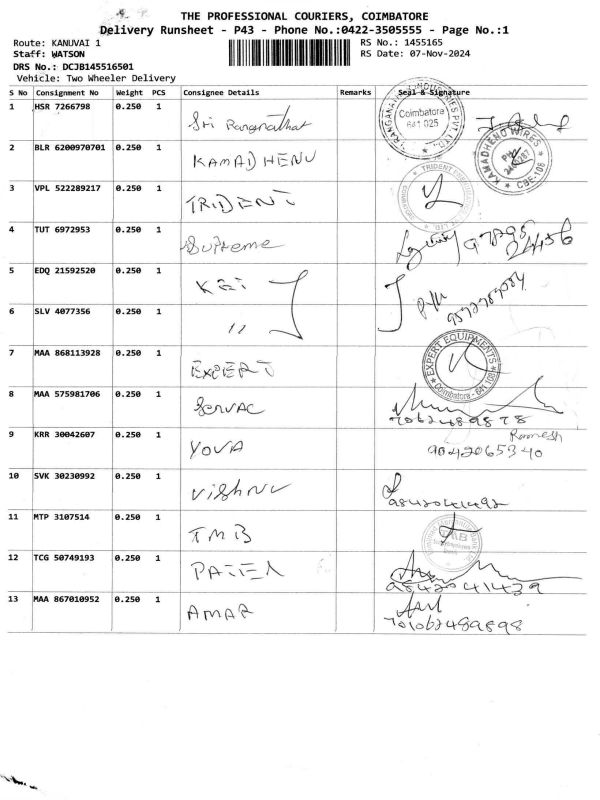 THE PROFESSIONAL COURIERS, COIMBATORE
Delivery Runsheet - P43 - Phone No.:0422-3505555 - Page No.:1
Route: KANUVAI 1
RS No.: 1455165
Staff: WATSON
RS Date: 07-Nov-2024
DRS No.: DCJB145516501
Vehicle: Two Wheeler Delivery
S No Consignment No Weight PCS Consignee Details Remarks Seal & Signature
1 HSR 7266798 0.250 1 Sri Ranganathar
Coimbatore 641 025
2 BLR 6200970701 0.250 1 KAMADHENU
KAMADHENU WIRES CBE-108
3 VPL 522289217 0.250 1 TRIDENT
TRIDENT
4 TUT 6972953 0.250 1 Supreme
5 EDQ 21592520 0.250 1
6 SLV 4077356 0.250 1 11
7 MAA 868113928 0.250 1 EXPERT
EXPERT EQUIPMENTS Coimbatore - 641 108
8 MAA 575981706 0.250 1 Servac
9 KRR 30042607 0.250 1 YOVA
9042065340
10 SVK 30230992 0.250 1 Vishnu
9842041492
11 MTP 3107514 0.250 1 TMB
12 TCG 50749193 0.250 1
9842041439
13 MAA 867010952 0.250 1 AMAR